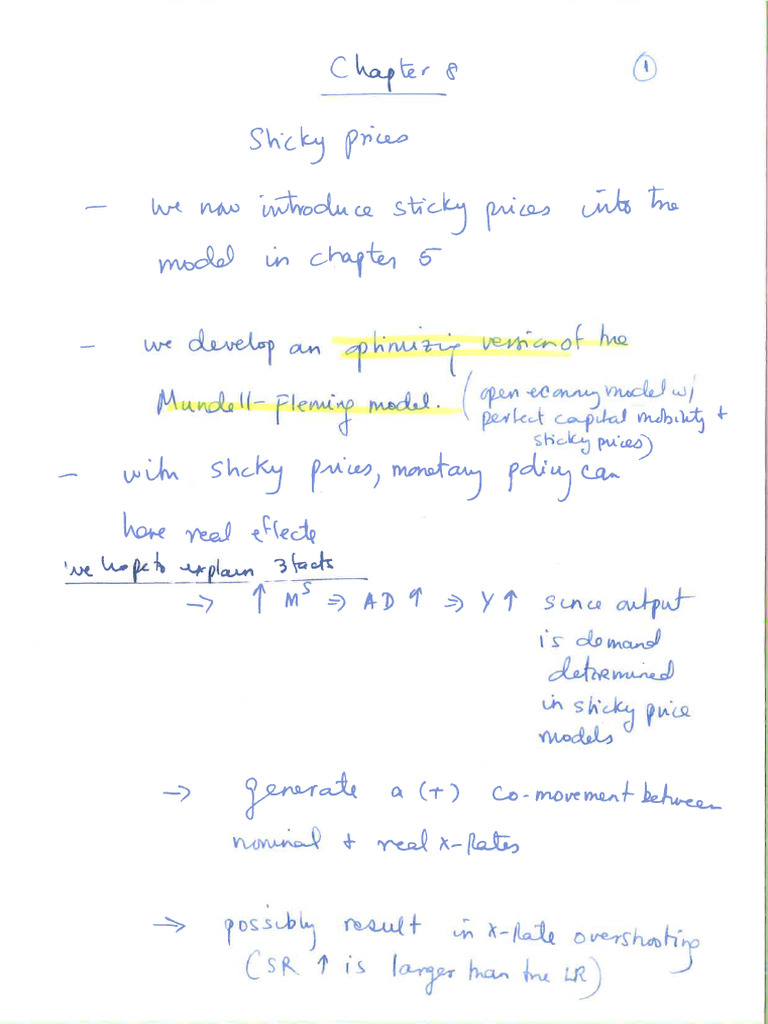 Chapter 8
1
Sticky prices
– we now introduce sticky prices into the
model in chapter 5
– we develop an optimizing version of the
Mundell-Fleming model. (open economy model w/
perfect capital mobility +
sticky prices)
– with sticky prices, monetary policy can
have real effects
we hope to explain 3 facts
→ ↑ Mˢ ⇒ AD ↑ ⇒ Y ↑ since output
is demand
determined
in sticky price
models
→ generate a (+) co-movement between
nominal + real x-Rates
→ possibly result in x-Rate overshooting
(SR ↑ is larger than the LR)